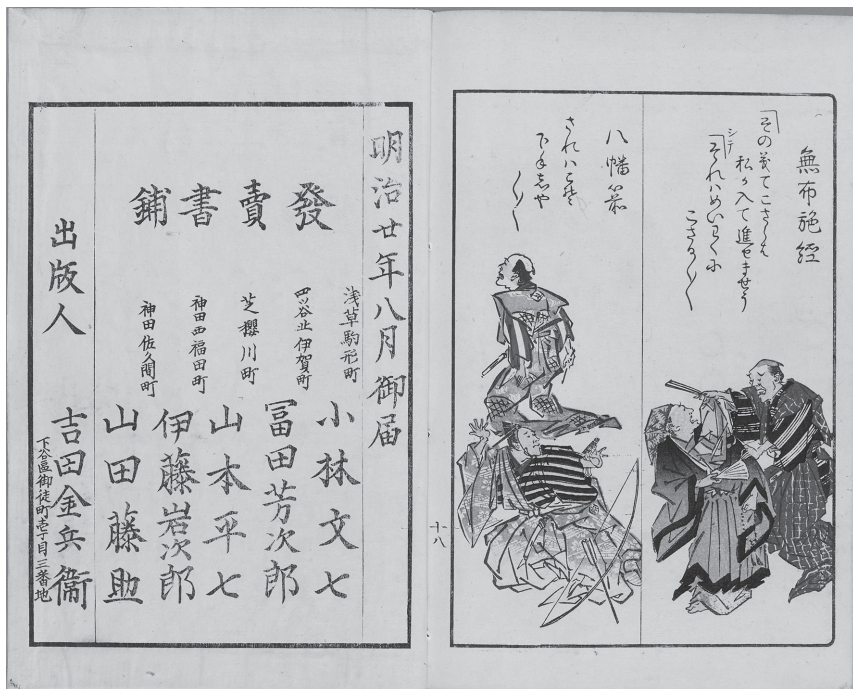 無布施經
「その義でこさらは
私か入て進せませう
シテ
「それハめいわくに
こさる〱
八幡前
されハこそ
〱
十八
明治廿年八月御届
發賣書鋪
浅草駒形町
小林文七
四ッ谷北伊賀町
冨田芳次郎
芝櫻川町
山本平七
神田西福田町
伊藤岩次郎
神田佐久間町
山田藤助
出版人
吉田金兵衞
下谷區御徒町壱丁目三番地